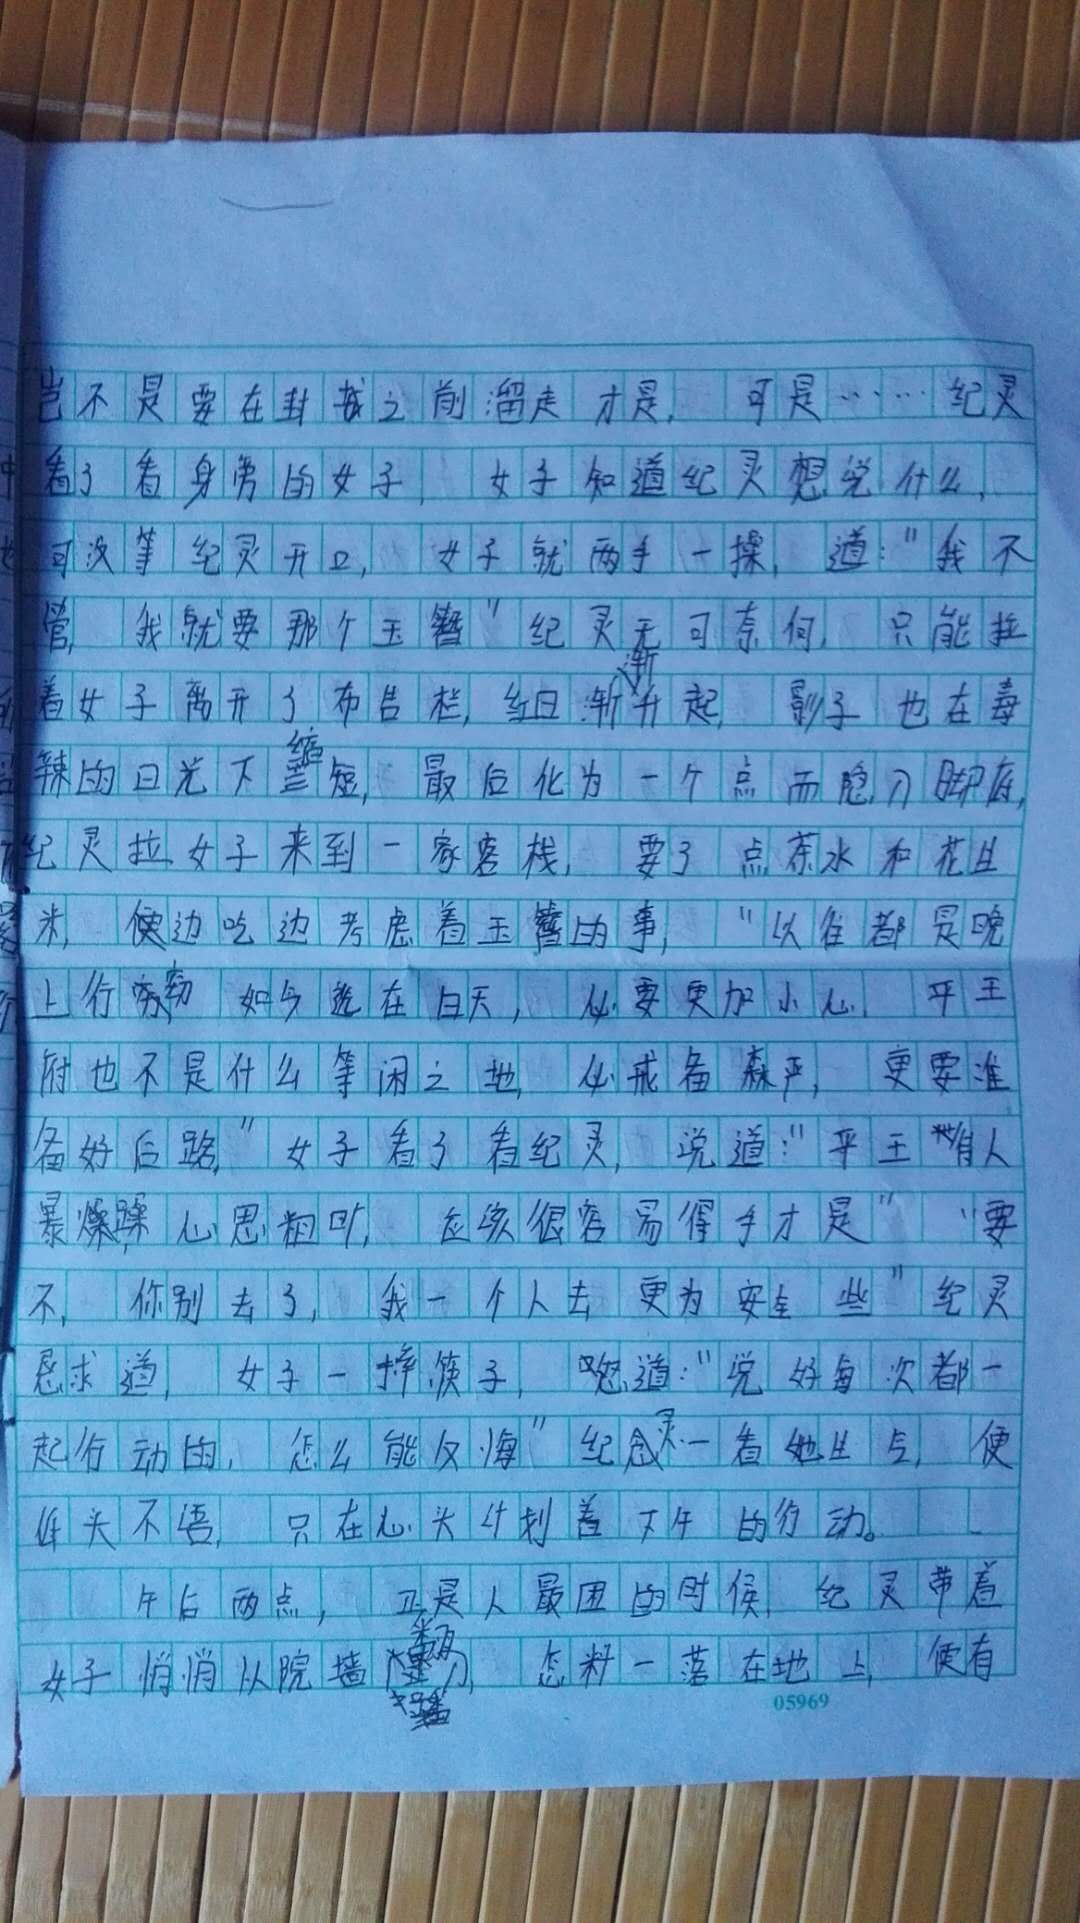 岂不是要在封城之前溜走才是,可是……纪灵
看了看身旁的女子,女子知道纪灵想说什么,
可没等纪灵开口,女子就两手一操,道:"我不
管,我就要那个玉簪"纪灵无可奈何,只能拉
着女子离开了布告栏,红日渐渐升起,影子也在毒
辣的日光下缩短,最后化为一个点而隐入脚底,
纪灵拉女子来到一家客栈,要了点茶水和花生
米,便边吃边考虑着玉簪的事,"以往都是晚
上行窃,如今选在白天,必要更加小心,平王
府也不是什么等闲之地,必戒备森严,更要准
备好后路,"女子看了看纪灵,说道:"平王有人
暴躁,心思粗旷,应该很容易得手才是""要
不,你别去了,我一个人去更为安全些"纪灵
恳求道,女子一摔筷子,怒道:"说好每次都一
起行动的,怎么能反悔"纪灵一看她生气,便
低头不语,只在心头计划着下午的行动。
午后两点,正是人最困的时候,纪灵带着
女子悄悄从院墙翻,怎料一落在地上,便有
05969